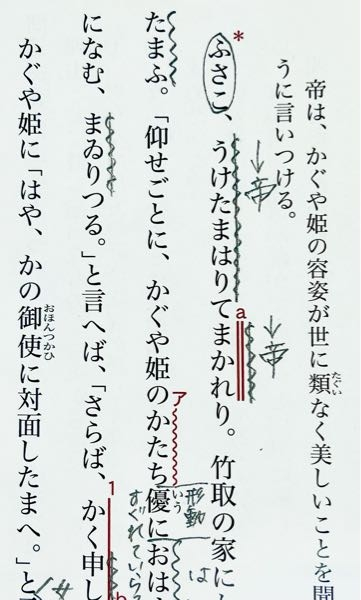 帝は、かぐや姫の容姿が世に類なく美しいことを聞
うに言いつける。
ふさこ、うけたまはりてまかれり。竹取の家に
たまふ。「仰せごとに、かぐや姫のかたち優におは
になむ、まゐりつる。」と言へば、「さらば、かく申し
かぐや姫に「はや、かの御使に対面したまへ。」と
たぐい
いう
おほんつかひ
*
a
ア
1
↓帝
↓帝
形動
は